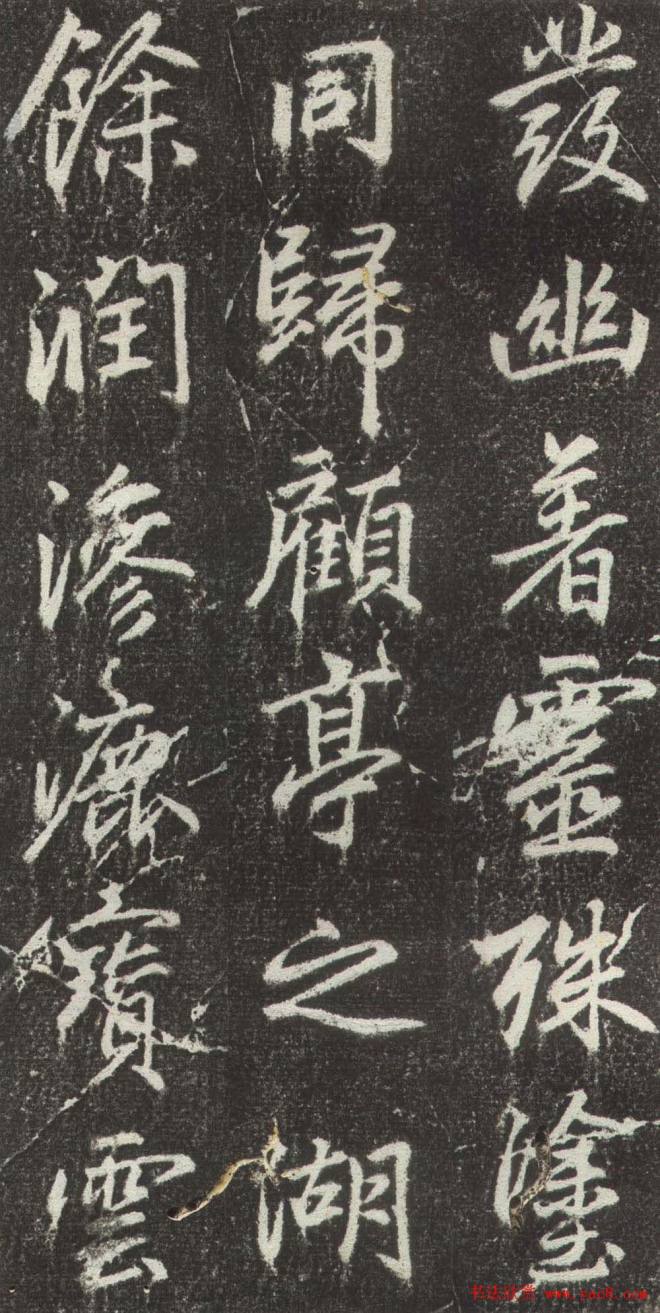 發幽著靈殊塗
同歸顧亭之湖
餘潤滲漉寶雲
书法欣赏 www.yac8.com